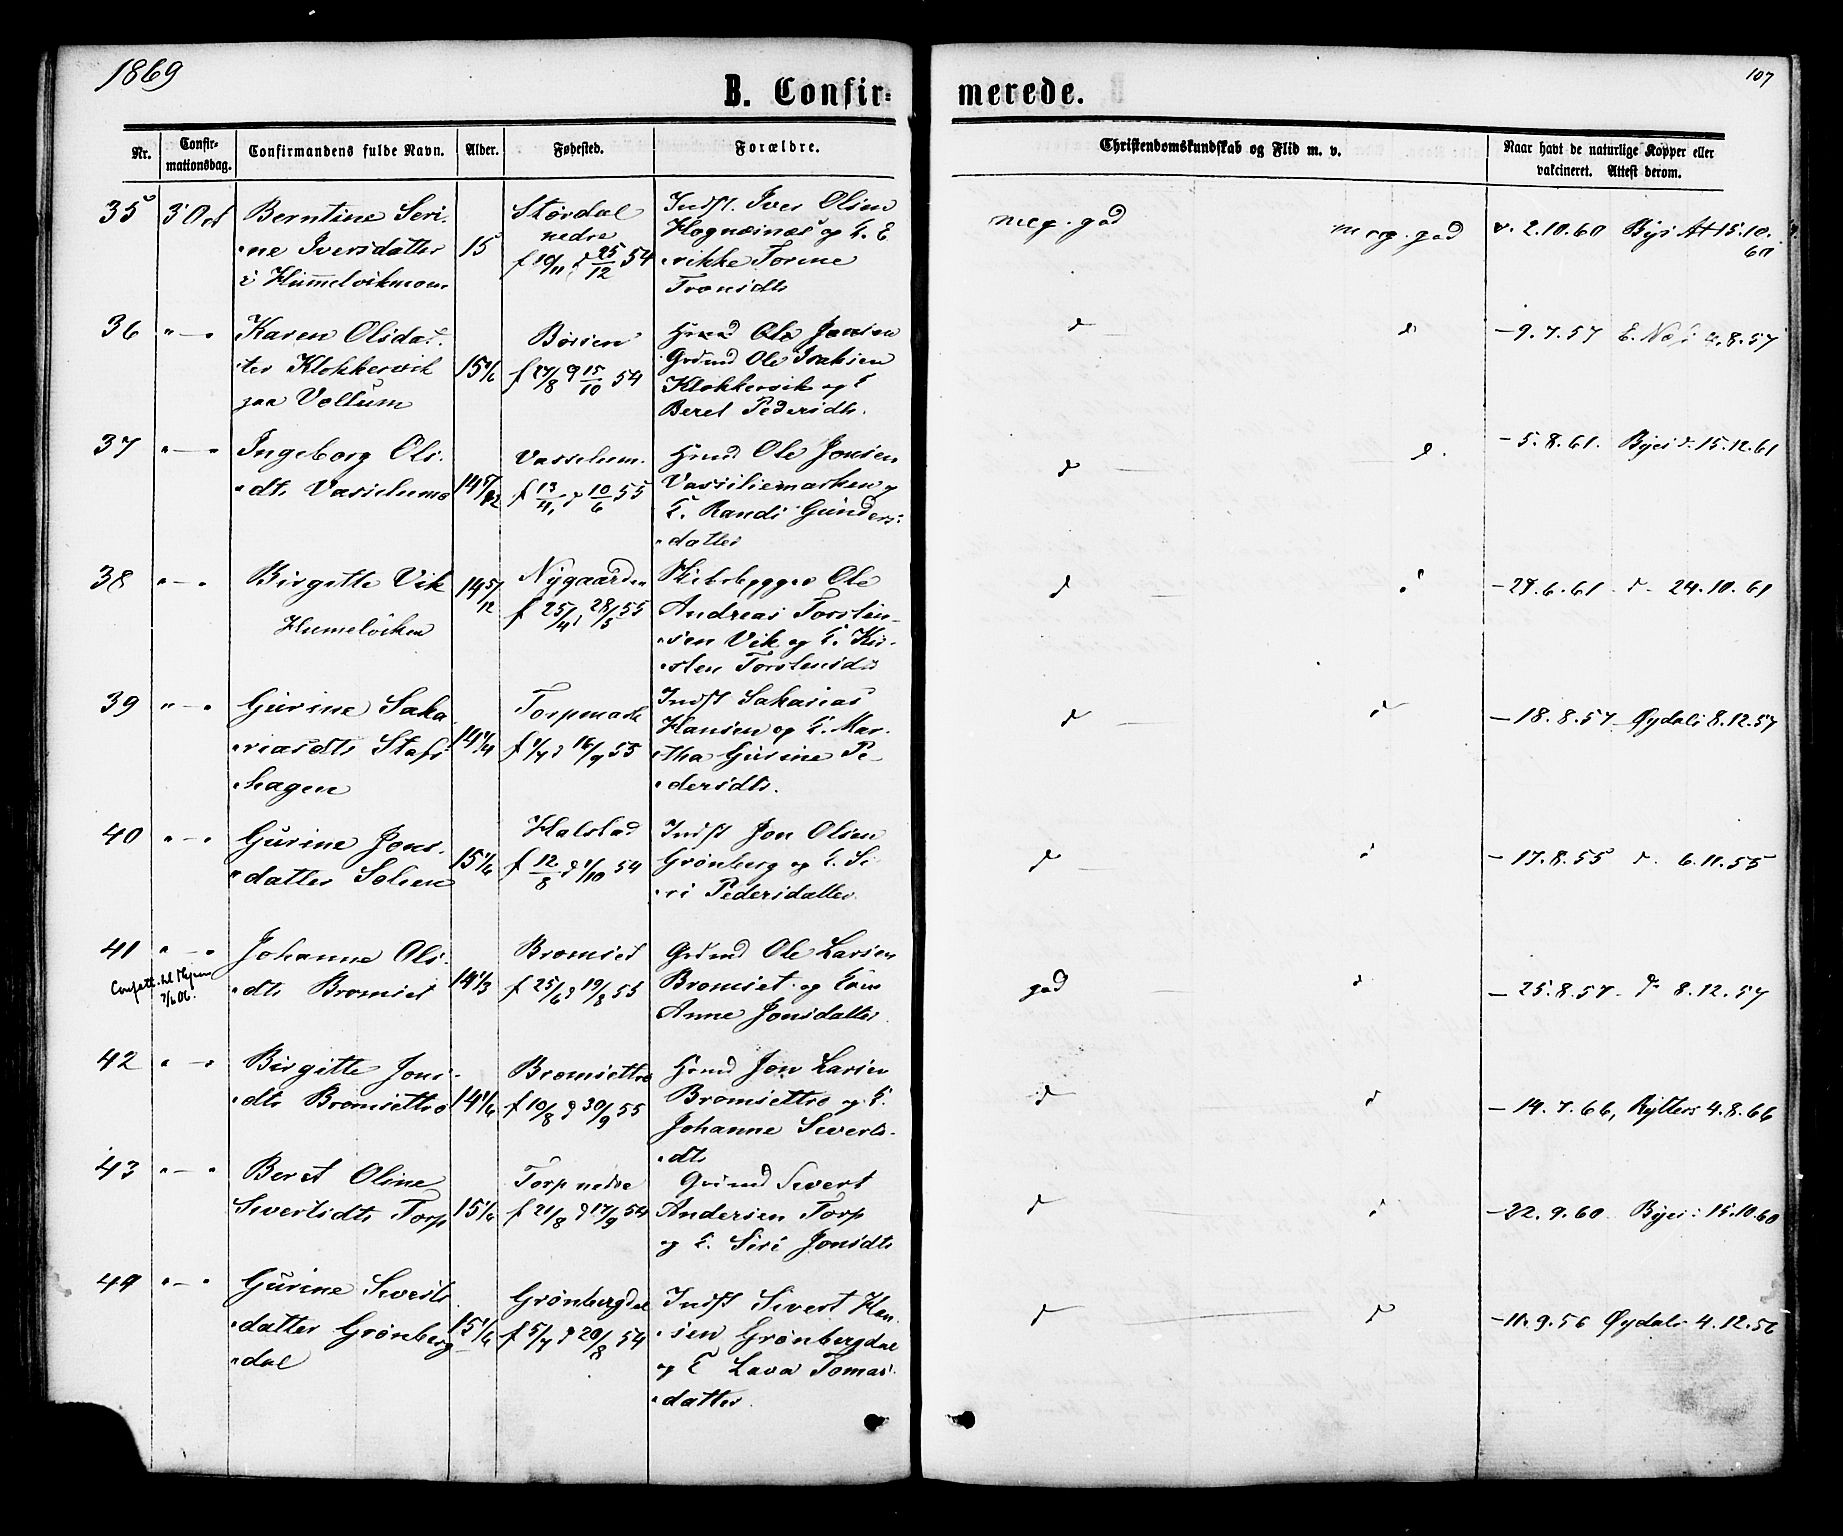 1869
107
B. Confir-
merede.
Nr.
Confir-
mationsdag.
Confirmandens fulde Navn.
Alder.
Fødested.
Forældre.
Christendomskundskab og Flid m. v.
Naar havt de naturlige Kopper eller
vakcineret. Attest derom.
35
3 Oct
Berntine Seri-
ne Iversdatter
i
15
Størdal
nedre
f 10/11 d 25/12 54
Indst. Iver Olsen
og
rikke
meg. god
meg. god
v. 2.10.60 Byes Att 15.10.
60
36
" — "
Karen Olsdat-
ter Klokkervik
paa Vollum
15 1/6
Børsen
f 27/8 d 15/10 54
Grdmd Ole
Klokkervik og
Beret Pedersdtr.
d — d
— 9.7.57
8.57
37
" — "
Ingeborg Ols-
dtr
14 5/12
f 13/4 d 10/6 55
Ole Jonsen
og
Randi Gunders-
datter
d — d.
— 5.8.61. Byes d. 15.12.61
38
" — "
Birgitte Vik
14 5/12
Nygaarden
f 25/4 d 28/5 55
Ole
Andreas Torstin-
sen Vik og
sten Torstensdtr
d — d
— 24.10.61
39
" — "
Gurine Saka-
riasdtr
hagen
14 1/4
f 1/7 d 16/7 55
Indst Sakarias
Hansen og Mar-
tha Gurine Pe-
dersdtr.
d — d
— 18.8.57 Øydals 8.12.57
40
" — "
Gurine Jons-
datter Solem
15 1/6
Halstad
f 12/8 d 1/10 54
Indst Jon Olsen
Grønberg og Si-
ri Pedersdatter
d — d
— 17.8.55 d. 6.11.55
41
" — "
Johanne Ols-
dtr Bromset
14 1/3
Bromset
f 25/6 d 19/8 55
Grdmd Ole Larsen
Bromset og
Anne Jonsdatter
god — d
— 25.8.57 — d 8.12.57
42
" — "
Birgitte Jons-
dtr Bromsettrø
14 1/6
Bromsettrø
f 10/8 d 30/9 55
Jon Larsen
Bromsettrø og
Johanne Siverts-
dtr
d — d
— 14.7.66, Rytters 4.8.66
43
" — "
Beret Oline
Sivertsdtr Torp
15 1/6
Torp nedre
f 21/8 d 17/9 54
Grdmd Sivert
Andersen Torp
og Siri Jonsdtr
d — d
— 22.9.60 Byes: 15.10.60
44
" — "
Gurine Siverts-
datter Grønberg-
dal
15 1/6
Grønbergdal
f 5/7 d 20/8 54
Indst Sivert Han-
sen Grønbergdal
og Lava Tomas-
datter
d — d
— 11.9.56 Øydals 4.12.56